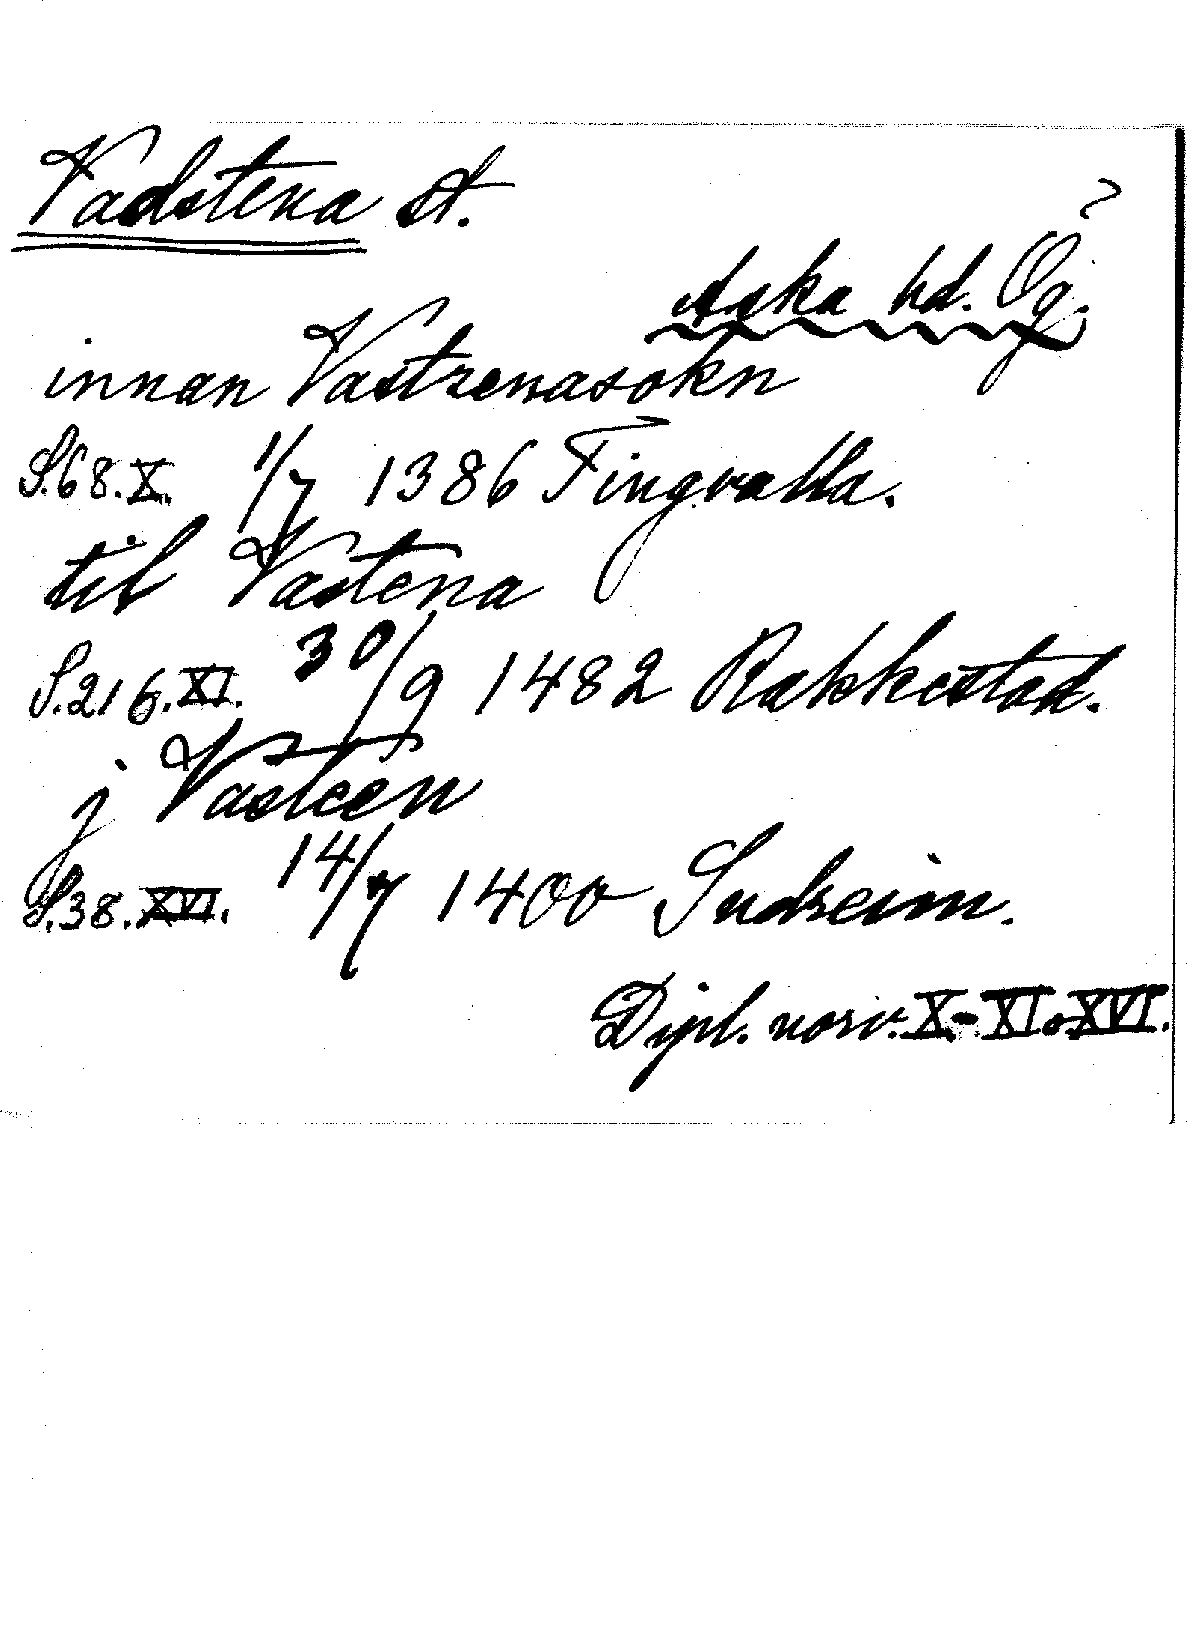 Vadstena st.
?
Aska hd. Ög.
innan Vastrenasokn
S.68.X. 1/7 1386 Tingvalla.
til Vastena
S.216.XI. 30/9 1482 Rakkestad.
j Vasteen
S.38.XVI. 14/7 1400 Sudreim.
Dipl. norv. X-XI o XVI.